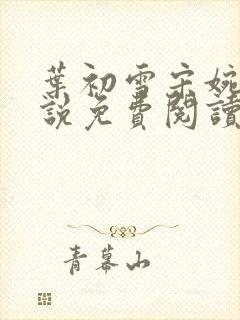 葉初雪宋婉
說免費閱讀
青幕山